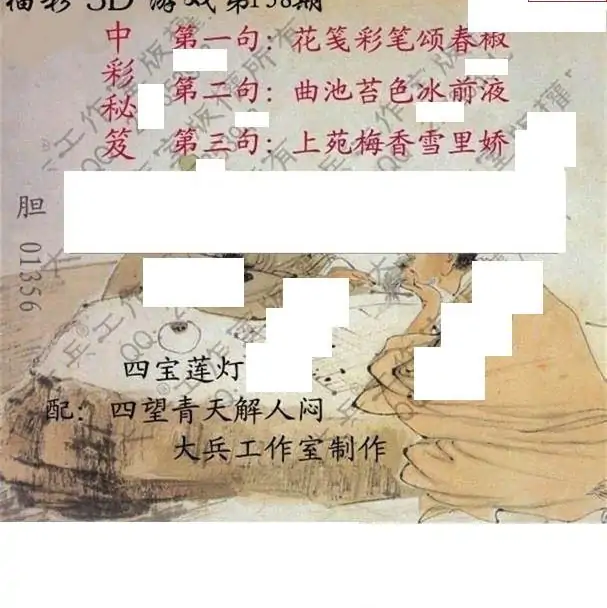 福彩3D游戏第158期
中彩秘笈
第一句：花笺彩笔颂春椒
第二句：曲池苔色冰前液
第三句：上苑梅香雪里娇
胆 01356
四宝莲灯
配：四望青天解人闷
大兵工作室制作